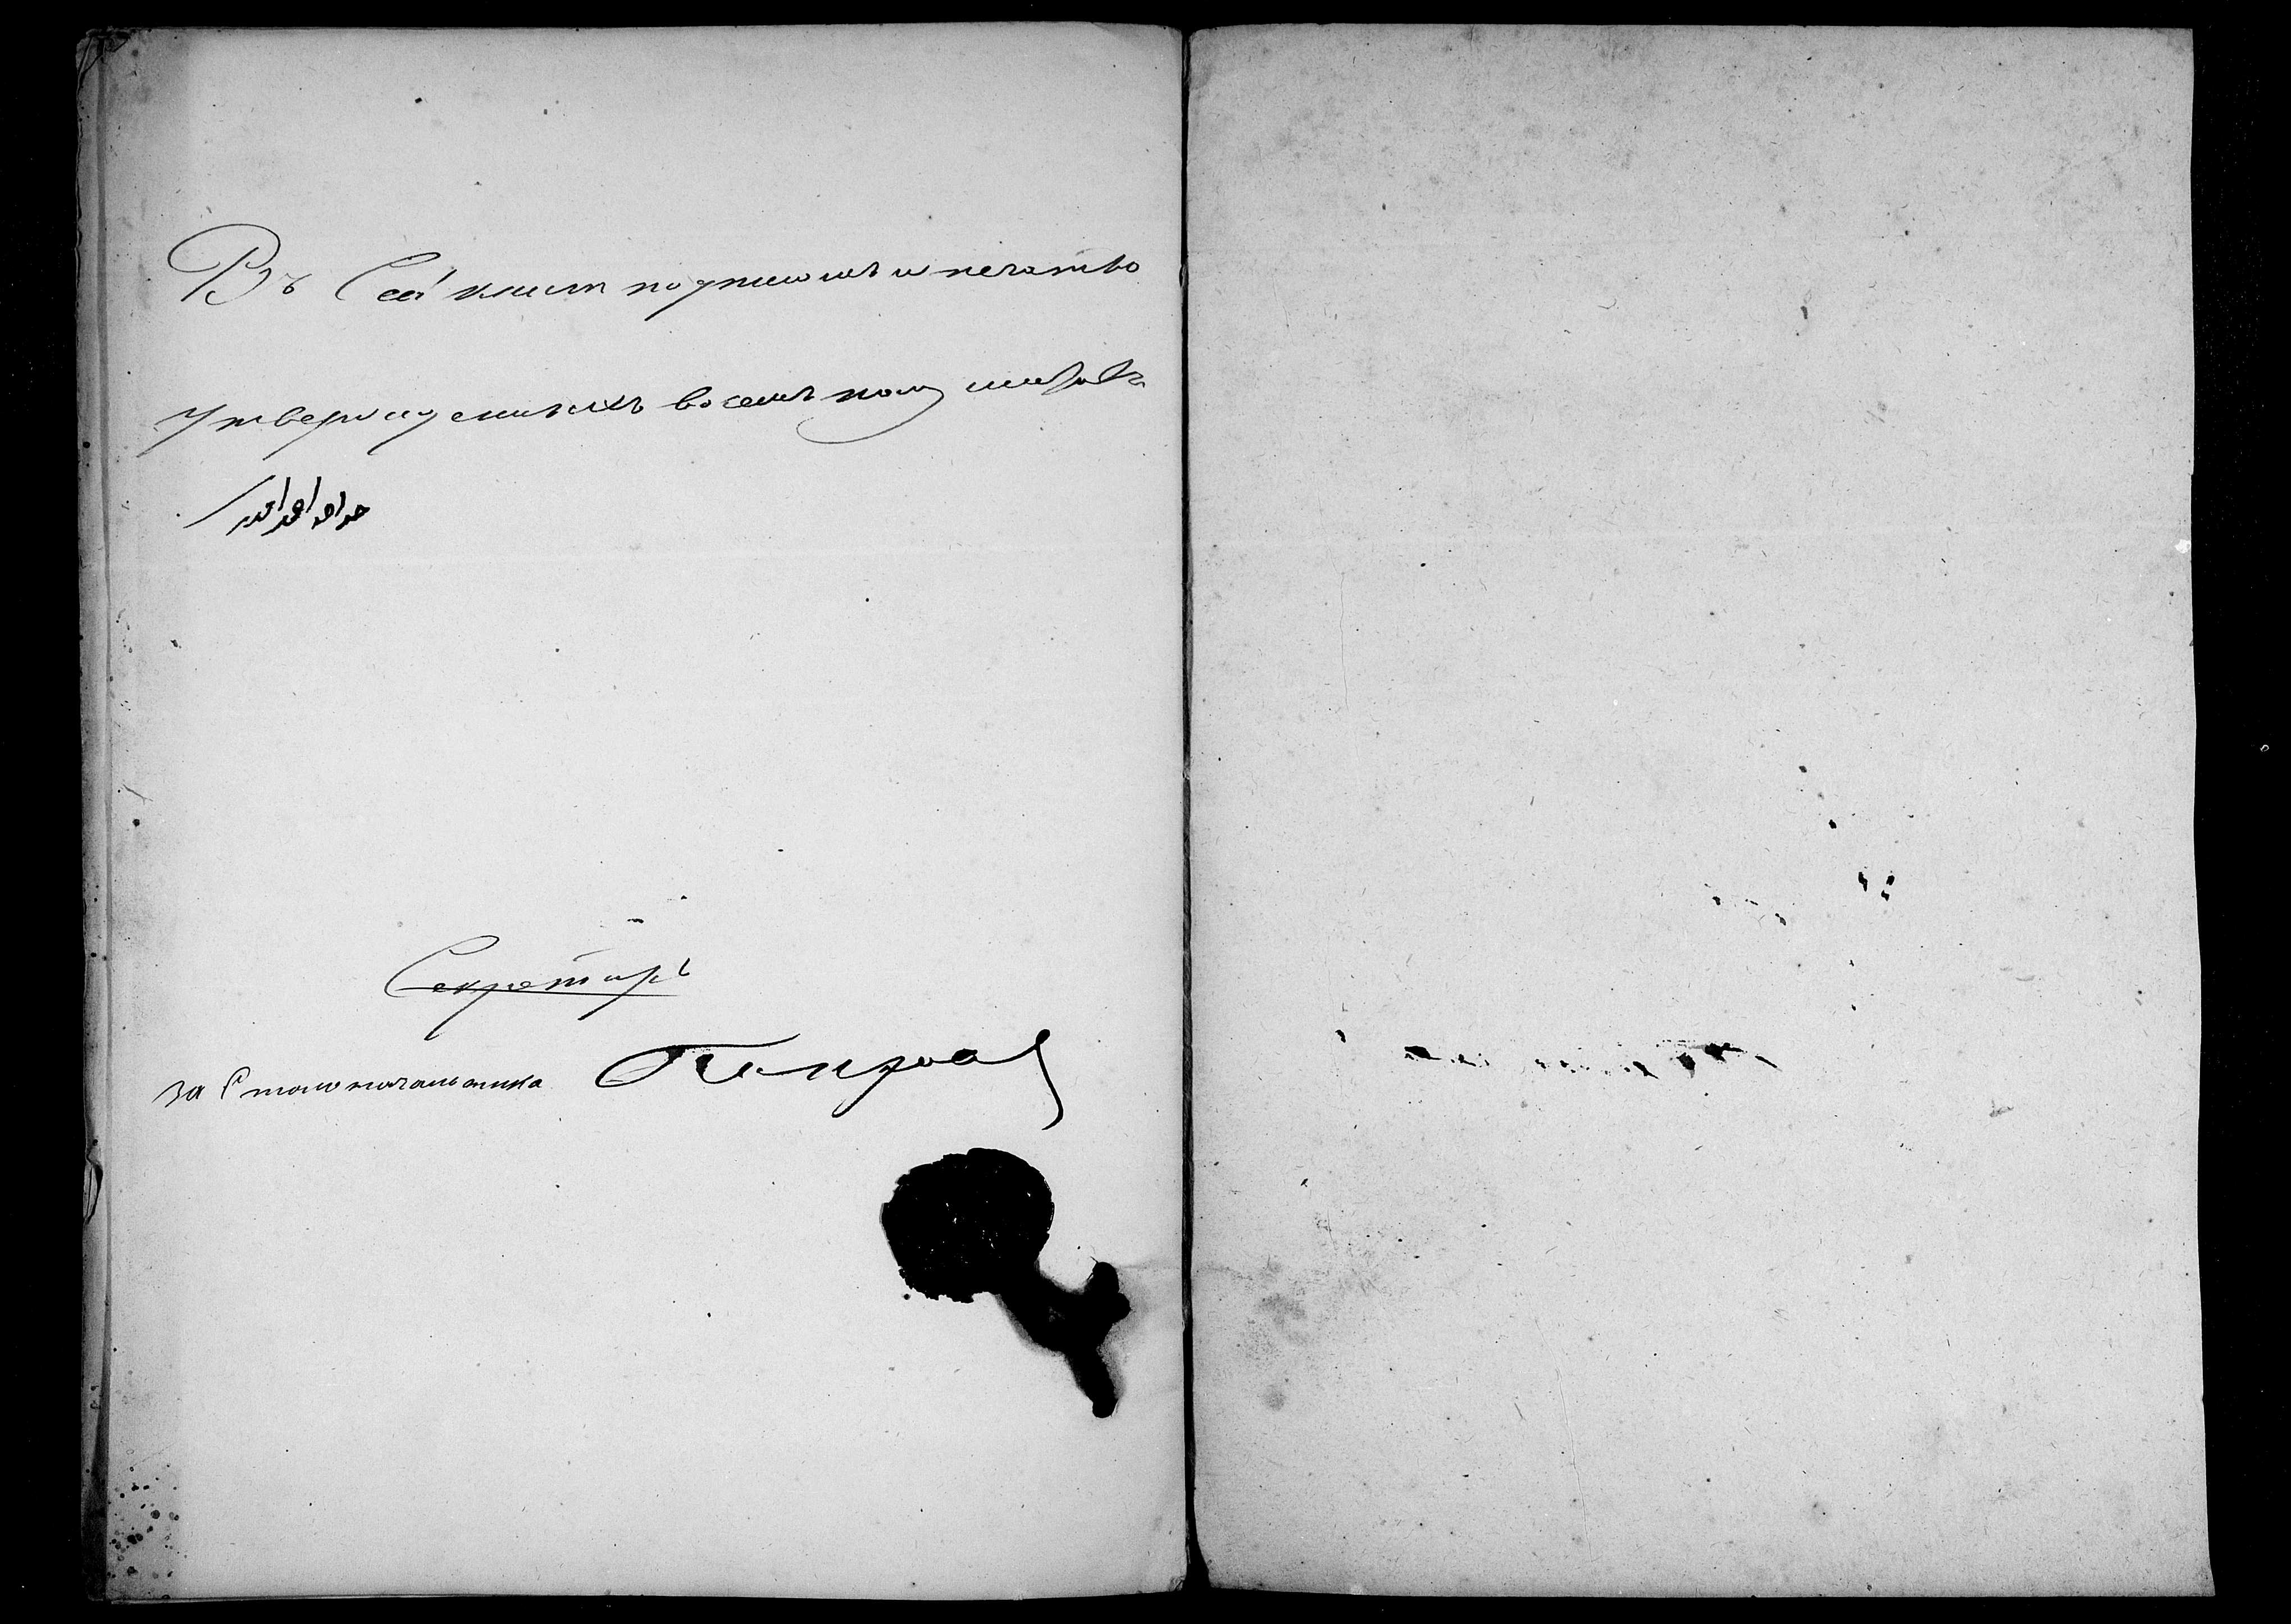 Въ Сей книгѣ подписомъ и печатью
утвержденныхъ восемь полу листовъ
Секретарь
за Столоначальника